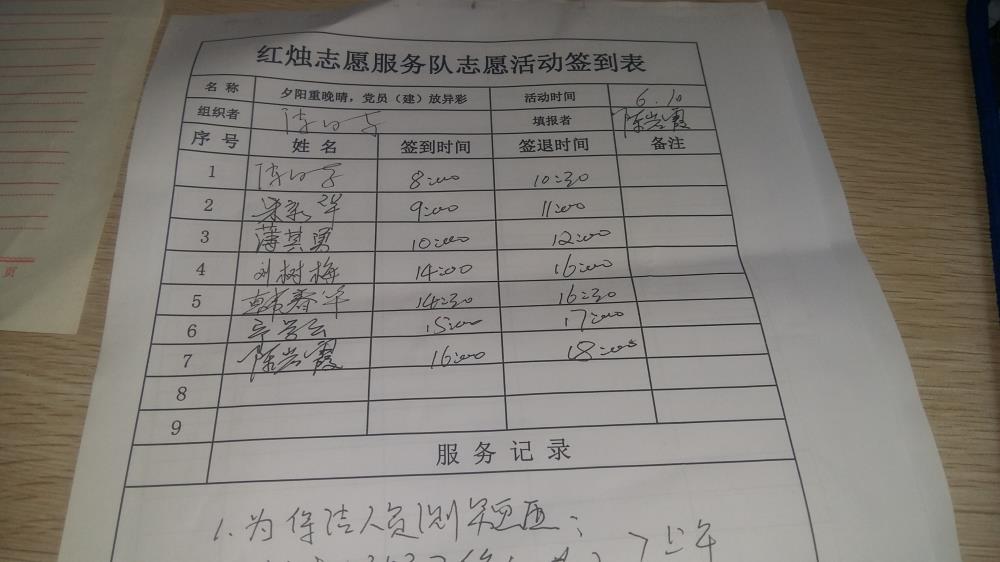 红烛志愿服务队志愿活动签到表
名称 夕阳重晚晴，党员（建）放异彩 活动时间 6.10
组织者 填报者 陈岩霞
序号 姓名 签到时间 签退时间 备注
1 8:00 10:30
2 9:00 11:00
3 薄其勇 10:00 12:00
4 刘树梅 14:00 16:00
5 韩春洋 14:30 16:30
6 15:00 17:00
7 陈岩霞 16:00 18:00
8
9
服务记录
1.为保洁人员测血压；
上午
页